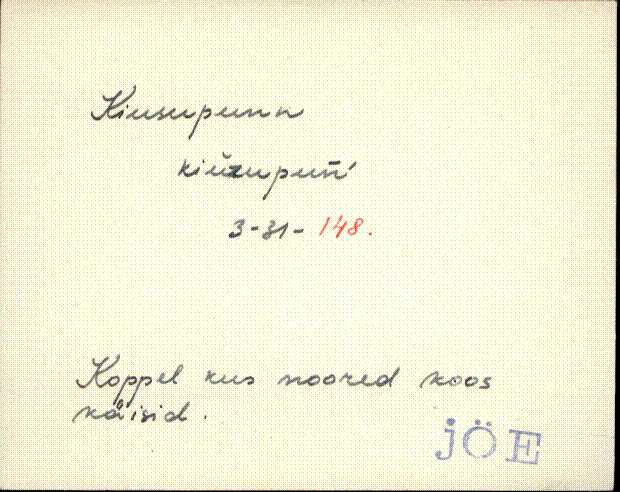 Kiusupunn
kiŭzupuń̄
3-31-148.
Koppel kus noored koos
käisid.
JÖE